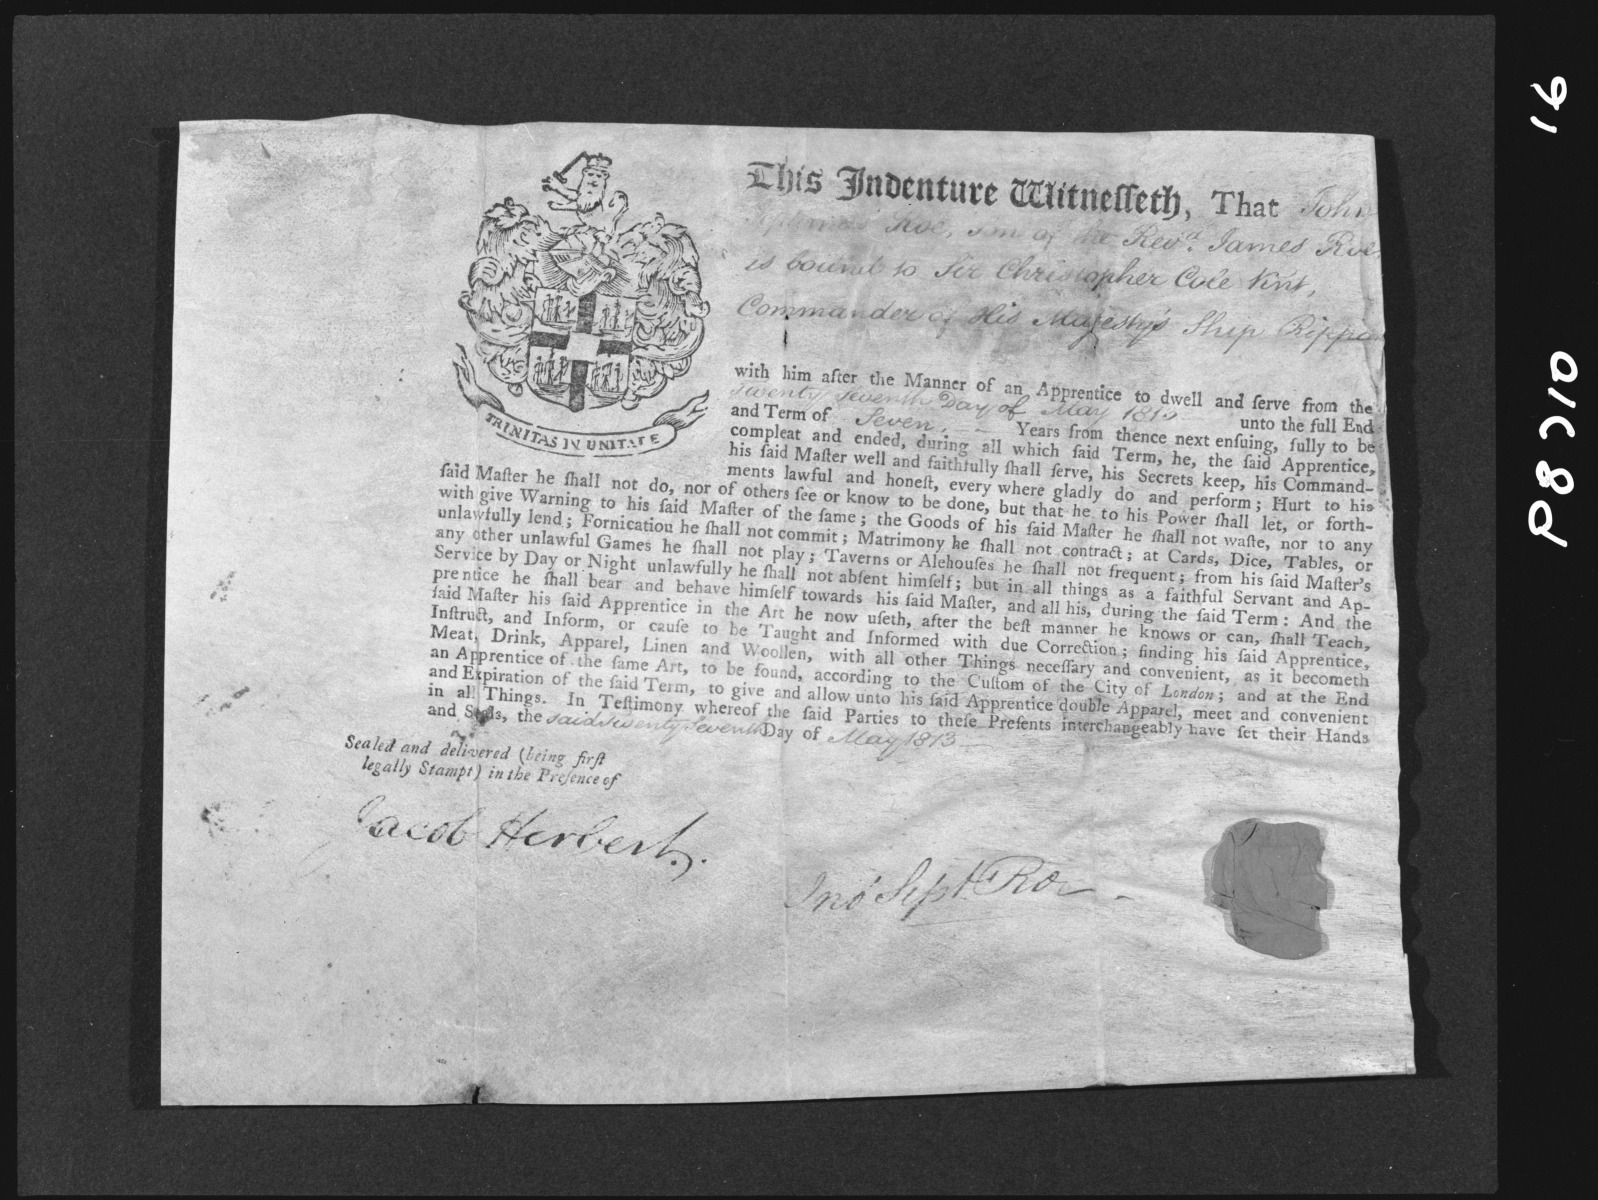 This Indenture Witneſſeth, That John
Septimus Roe, son of the Revd. James Roe
is bound to Sir Christopher Cole Knt,
Commander of His Majesty's Ship Rippon
with him after the Manner of an Apprentice to dwell and ſerve from the
Twenty Seventh Day of May 1813 unto the full End
and Term of Seven Years from thence next enſuing, fully to be
compleat and ended, during all which ſaid Term, he, the ſaid Apprentice,
his ſaid Maſter well and faithfully ſhall ſerve, his Secrets keep, his Command-
ments lawful and honeſt, every where gladly do and perform; Hurt to his
ſaid Maſter he ſhall not do, nor of others ſee or know to be done, but that he to his Power ſhall let, or forth-
with give Warning to his ſaid Maſter of the ſame; the Goods of his ſaid Maſter he ſhall not waſte, nor to any
unlawfully lend; Fornication he ſhall not commit; Matrimony he ſhall not contract; at Cards, Dice, Tables, or
any other unlawful Games he ſhall not play; Taverns or Alehouſes he ſhall not frequent; from his ſaid Maſter's
Service by Day or Night unlawfully he ſhall not abſent himſelf; but in all things as a faithful Servant and Ap-
prentice he ſhall bear and behave himſelf towards his ſaid Maſter, and all his, during the ſaid Term: And the
ſaid Maſter his ſaid Apprentice in the Art he now uſeth, after the beſt manner he knows or can, ſhall Teach,
Inſtruct, and Inform, or cauſe to be Taught and Informed with due Correction; finding his ſaid Apprentice,
Meat, Drink, Apparel, Linen and Woollen, with all other Things neceſſary and convenient, as it becometh
an Apprentice of the ſame Art, to be found, according to the Cuſtom of the City of London; and at the End
and Expiration of the ſaid Term, to give and allow unto his ſaid Apprentice double Apparel, meet and convenient
in all Things. In Teſtimony whereof the ſaid Parties to theſe Preſents interchangeably have ſet their Hands
and Seals, the said Twenty Seventh Day of May 1813
TRINITAS IN UNITATE
Sealed and delivered (being firſt
legally Stampt) in the Preſence of
Jacob Herbert.
Jno Sept. Roe
P8310 16